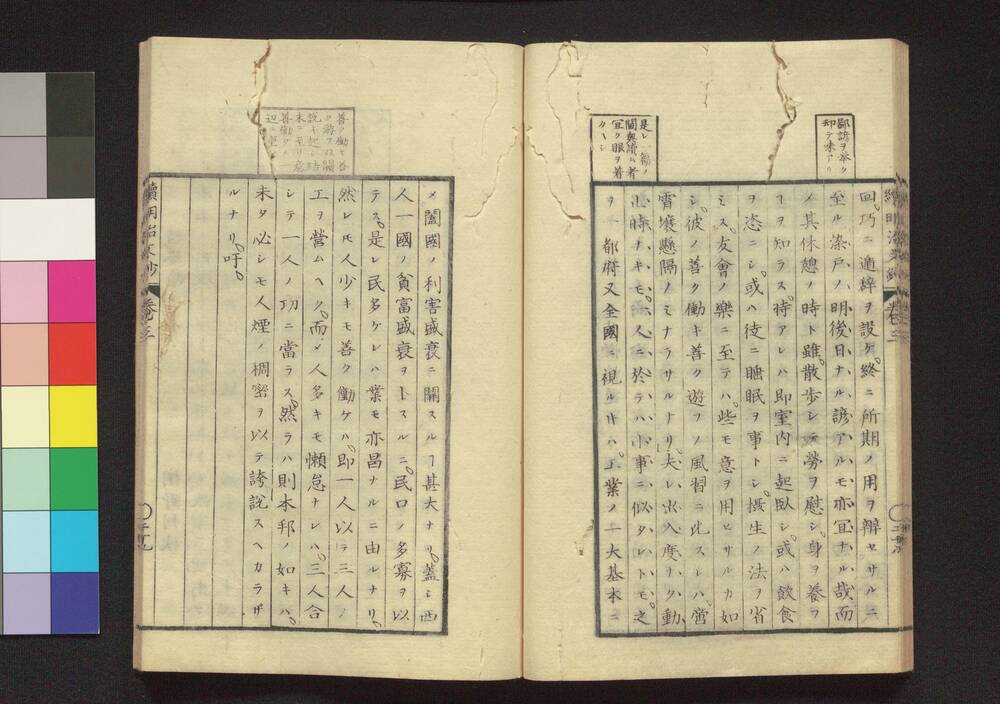 鄙諺ヲ擧ク
却テ味アリ
回。巧ニ遁辞ヲ設ケ。終ニ所期ノ用ヲ辨セサルニ
至ル。染戸ノ明後日ナル諺アルモ亦宜ナル哉而
メ其休憩ノ時ト雖。散歩シテ労ヲ慰シ。身ヲ養フ
ヿヲ知ラス。時アレハ即室内ニ起臥シ。或ハ飲食
ヲ恣ニシ。或ハ徒ニ睡眠ヲ事トシ。摂生ノ法ヲ省
ミス。友會ノ樂ニ至テハ。些モ意ヲ用ヒサルカ如
シ。彼ノ善ク働キ善ク遊フノ風習ニ比スレハ。啻
霄壌懸隔ノミナラサルナリ。夫レ出入度ナク動
止時ナキモ。一人ニ於テハ小事ニ似タレトモ。之
ヲ一都府又全國ニ視ルキハ。工業ノ一大基本ニ
是レ一篇ノ
關奥讀ム者
宜ク眼ヲ着
クヘシ
メ闔國ノ利害盛衰ニ關スルヿ甚大ナリ。蓋シ西
人一國ノ貧富盛衰ヲトスルニ。民口ノ多寡ヲ以
テス。是レ民多ケレハ業モ亦昌ナルニ由ルナリ。
然レ𪜈人少キモ善ク働ケハ。即一人以テ三人ノ
工ヲ營ムヘク。而メ人多キモ懶怠ナレハ。三人合
シテ一人ノ功ニ當ラス。然ラハ則本邦ノ如キハ。
未タ必シモ人煙ノ稠密ヲ以テ誇説スヘカラザ
ルナリ。吁。
續明治文抄
巻之三